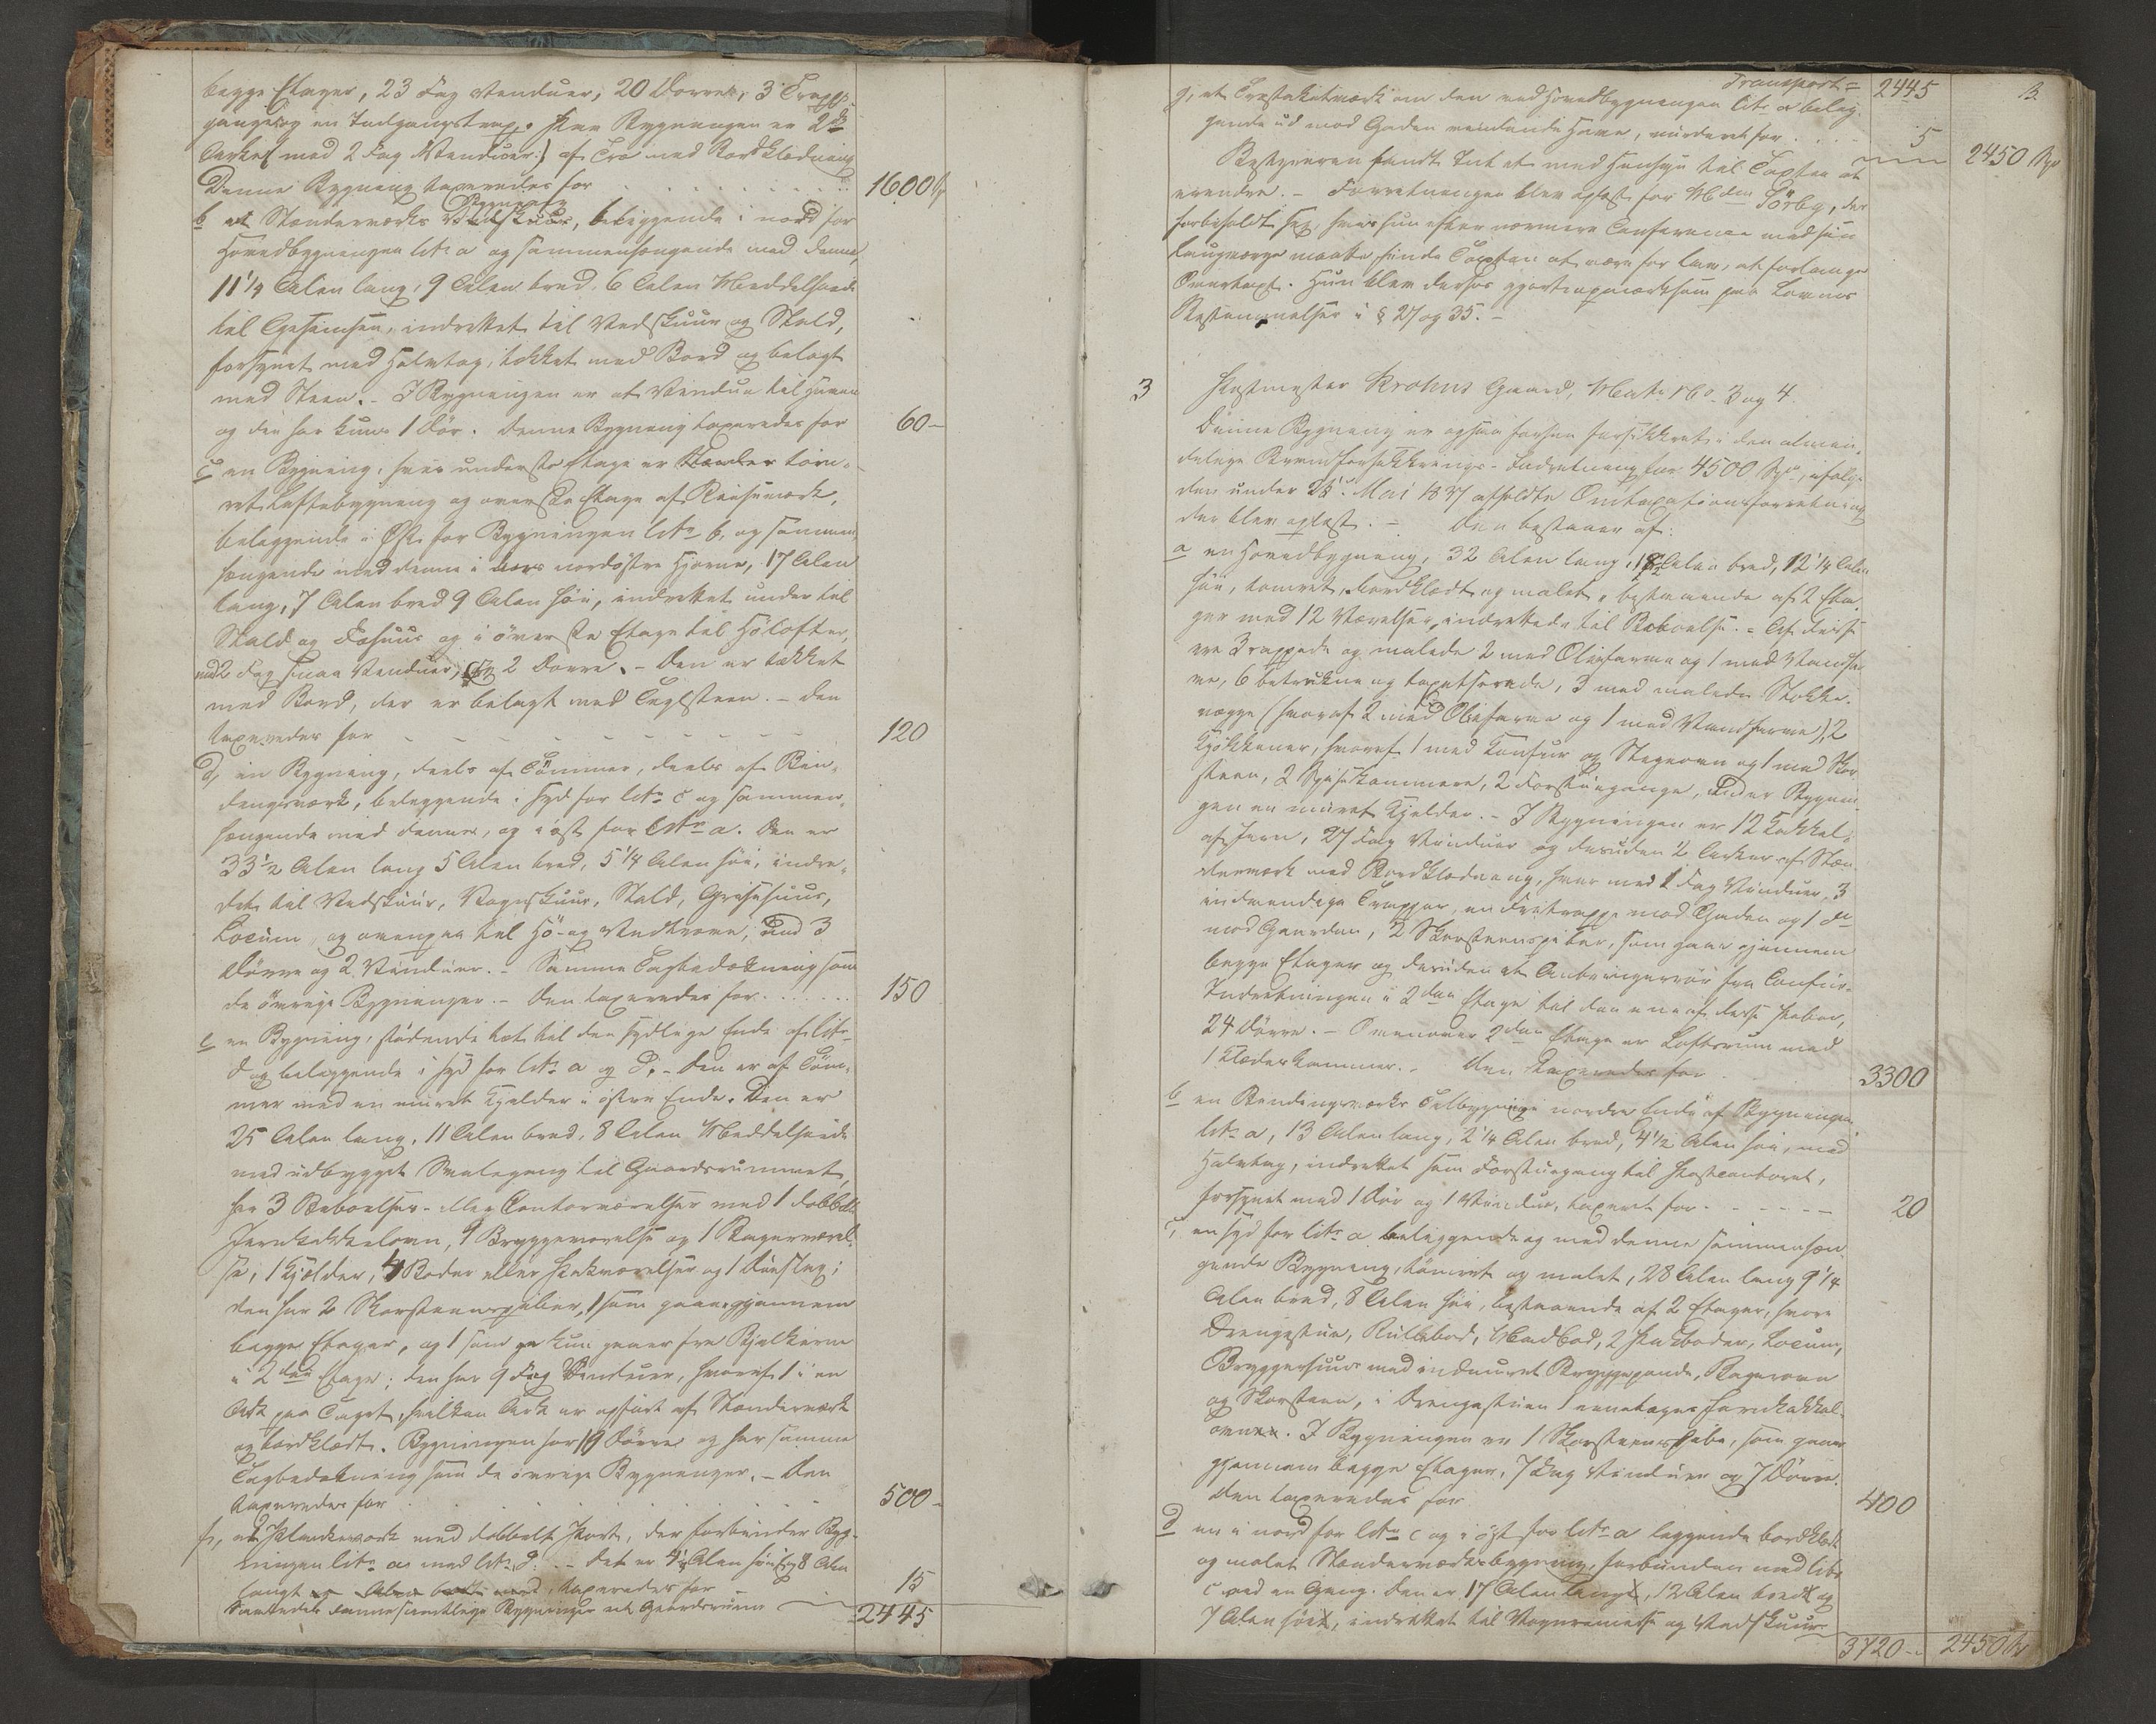 begge Etager, 23 Fag Venduer, 20 Dørre, 3 Trappe
gange og en Indgangstrap. Paa Bygningen er 2de
Arker med 2 Fag Venduer af Træ med Bordklædning
Denne Bygning taxeredes for 1600 Sp
b et Stænderværks Bygning, beliggende i nord for
Hovedbygningen litr a og sammenhængende med denne,
11 1/4 Alen lang, 9 Alen bred, 6 Alen Meddelhøide
til Gesimsen, indrettet til Vedskuur og Stald,
forsynet med Halvtag, tækket med Bord og belagt
med Steen. - I Bygningen er et Vendue til Haven
og den har kun 1 Dør. Denne Bygning taxeredes for 60 -
c en Bygning, hvis underste Etage er tøm-
ret Laftebygning og øverste Etage af Reisværk,
beliggende i Øst for Bygningen litr b, og sammen-
hængende med denne i nordøstre Hjørne, 17 Alen
lang, 7 Alen bred 9 Alen høi, indrettet under til
Stald og Fæhuus og i øverste Etage til Høloftr,
med 2 Fag smaa Venduer, og 2 Dørre. - Den er tækket
med Bord, der er belagt med Teglsteen. - Den
taxeredes for 120
d, en Bygning, deels af Tømmer, deels af Bin-
dingsværk, beliggende i Syd for litr c og sammen-
hængende med denne, og i øst for litr a. Den er
33 1/2 Alen lang 5 Alen bred, 5 1/4 Alen høi, indre-
det til Vedskuur, Vognskuur, Stald, Grisehuus,
Locum, og ovenpaa til Hø- og Vedtrom, med 3
Dørre og 2 Venduer. - Samme Tagbedækning som
de øvrige Bygninger. - Den taxeredes for 150
e en Bygning, stødende tæt til den sydlige Ende af litr
d og beliggende i Syd for litr a og d. - Den er af Tøm-
mer med en muret Kjelder i østre Ende. Den er
25 Alen lang, 11 Alen bred, 8 Alen Meddelhøide
med udbygget Svalegang til Gaardsrummet,
har 3 Beboelses- eller Contorværelser med 1 dobbelt
Jernkakkelovn, 1 Bryggeværelse og 1 Bagerværel-
se, 1 Kjelder, 4 Boder eller Pakværelser og 1
den har 2 Skorsteenspiber, 1 som gaaer gjennem
begge Etager, og 1 som kun gaaer fra Bjelkerne
i 2den Etage; den har 9 Fag Venduer, hvoraf 1 i en
Ark paa Taget, hvilken Ark er opført af Stænderværk
og bordklædt. Bygningen har 19 Dørre og har samme
Tagbedækning som de øvrige Bygninger. - Den
taxeredes for 500 -
f, et Plankeværk med dobbelt Port, der forbinder Byg-
ningen litr a med litr d. - Det er 4 1/2 Alen høit og 8 Alen
langt, taxeredes for 15
Saavidt denne samtlige Bygninger et Gaardsrum
2445
Transport = 2445
13.
g, et Træstakitværk om den ved Hovedbygningen litr a belig-
gende ud mod Gaden vendende Have, vurderet for 5
2450 Sp
Bestyreren fandt Intet med Hensyn til Taxten at
erindre. - Forretningen blev oplæst for Mdm Sörby, der
forbeholdt sig hvis hun efter nærmere Conference med sin
Laugværge maatte finde Taxten at være for lav, at forlange
Overtaxt. Hun blev derhos gjort opmærksom paa Lovens
Bestemmelser i § 27 og 35. -
3 Postmester Krohns Gaard, Matr No 3 og 4.
Denne Bygning er ogsaa forhen forsikkret i den almin-
delige Brandforsikkrings-Indretning for 4500 Sp, ifølge
den under 25 Mai 1837 afholdte Omtaxationsforretning
der blev oplæst. - Den bestaaer af:
a en Hovedbygning, 32 Alen lang, Alen bred, 12 1/4 Alen
høi, tømret, bordklædt og malet, bestaaende af 2 Eta-
ger med 12 Værelser, indrettede til Beboelse. - Af disse
ere 3 rappede og malede 2 med Oliefarve og 1 med Vandfar-
ve, 6 betrukne og tapetserede, 3 med malede Stokke-
vægge (hvoraf 2 med Oliefarve og 1 med Vandfarve), 2
Kjøkkener, hvoraf 1 med Comfur og Stegeovn og 1 med Skor-
steen, 2 Spisekammere, 2 Forstuegange, under Bygnin-
gen en muret Kjelder. - I Bygningen er 12 Kakkelo
af Jern, 27 Fag Venduer og desuden 2 Arker af Stæn-
derværk med Bordklædning, hver med 1 Fag Venduer, 3
indvendige Trapper, en Fritrappe mod Gaden og 1 do
mod Gaarden, 2 Skorsteenspiber, som gaae gjennem
begge Etager og desuden et Anbringerrør fra Comfur-
Indretningen i 2den Etage til den ene af disse Piber,
24 Dørre. - Ovenover 2den Etage er Loftsrum med
1 Klædeskammer. - Den Taxeredes for 3300
b en Bindingsværks Tilbygning i nordre Ende af Bygningen
litr a, 13 Alen lang, 2 1/4 Alen bred, 4 1/2 Alen høi, med
Halvtag, indrettet som Forstuegang til Postcontoret,
forsynet med 1 Dør og 1 Vindue, taxeret for 20
c, en Syd for litr a beliggende og med denne sammenhæn-
gende Bygning, tømret og malet, 28 Alen lang 9 1/4
Alen bred, 8 Alen høi, bestaaende af 2 Etager, hvori
Drengestue, Rullebod, Madbod, 2 Pakboder, Locum,
Bryggerhuus med indmuret Bryggepande, Bagerovn
og Skorsteen, i Drengestuen 1 eenetages Jernkakkel-
ovn. I Bygningen er 1 Skorsteenspibe, som gaaer
gjennem begge Etager, 7 Fag Vinduer og 7 Dørre.
Den taxeredes for 400
d en i nord for litr c og i øst for litr a liggende bordklædt
og malet Stænderværksbygning, forbunden med litr
c ved en Gang. Den er 17 Alen lang, 12 Alen bred og
7 Alen høi, indrettet til Vognremisse og Vedskuur
3720 - 2450 Sp